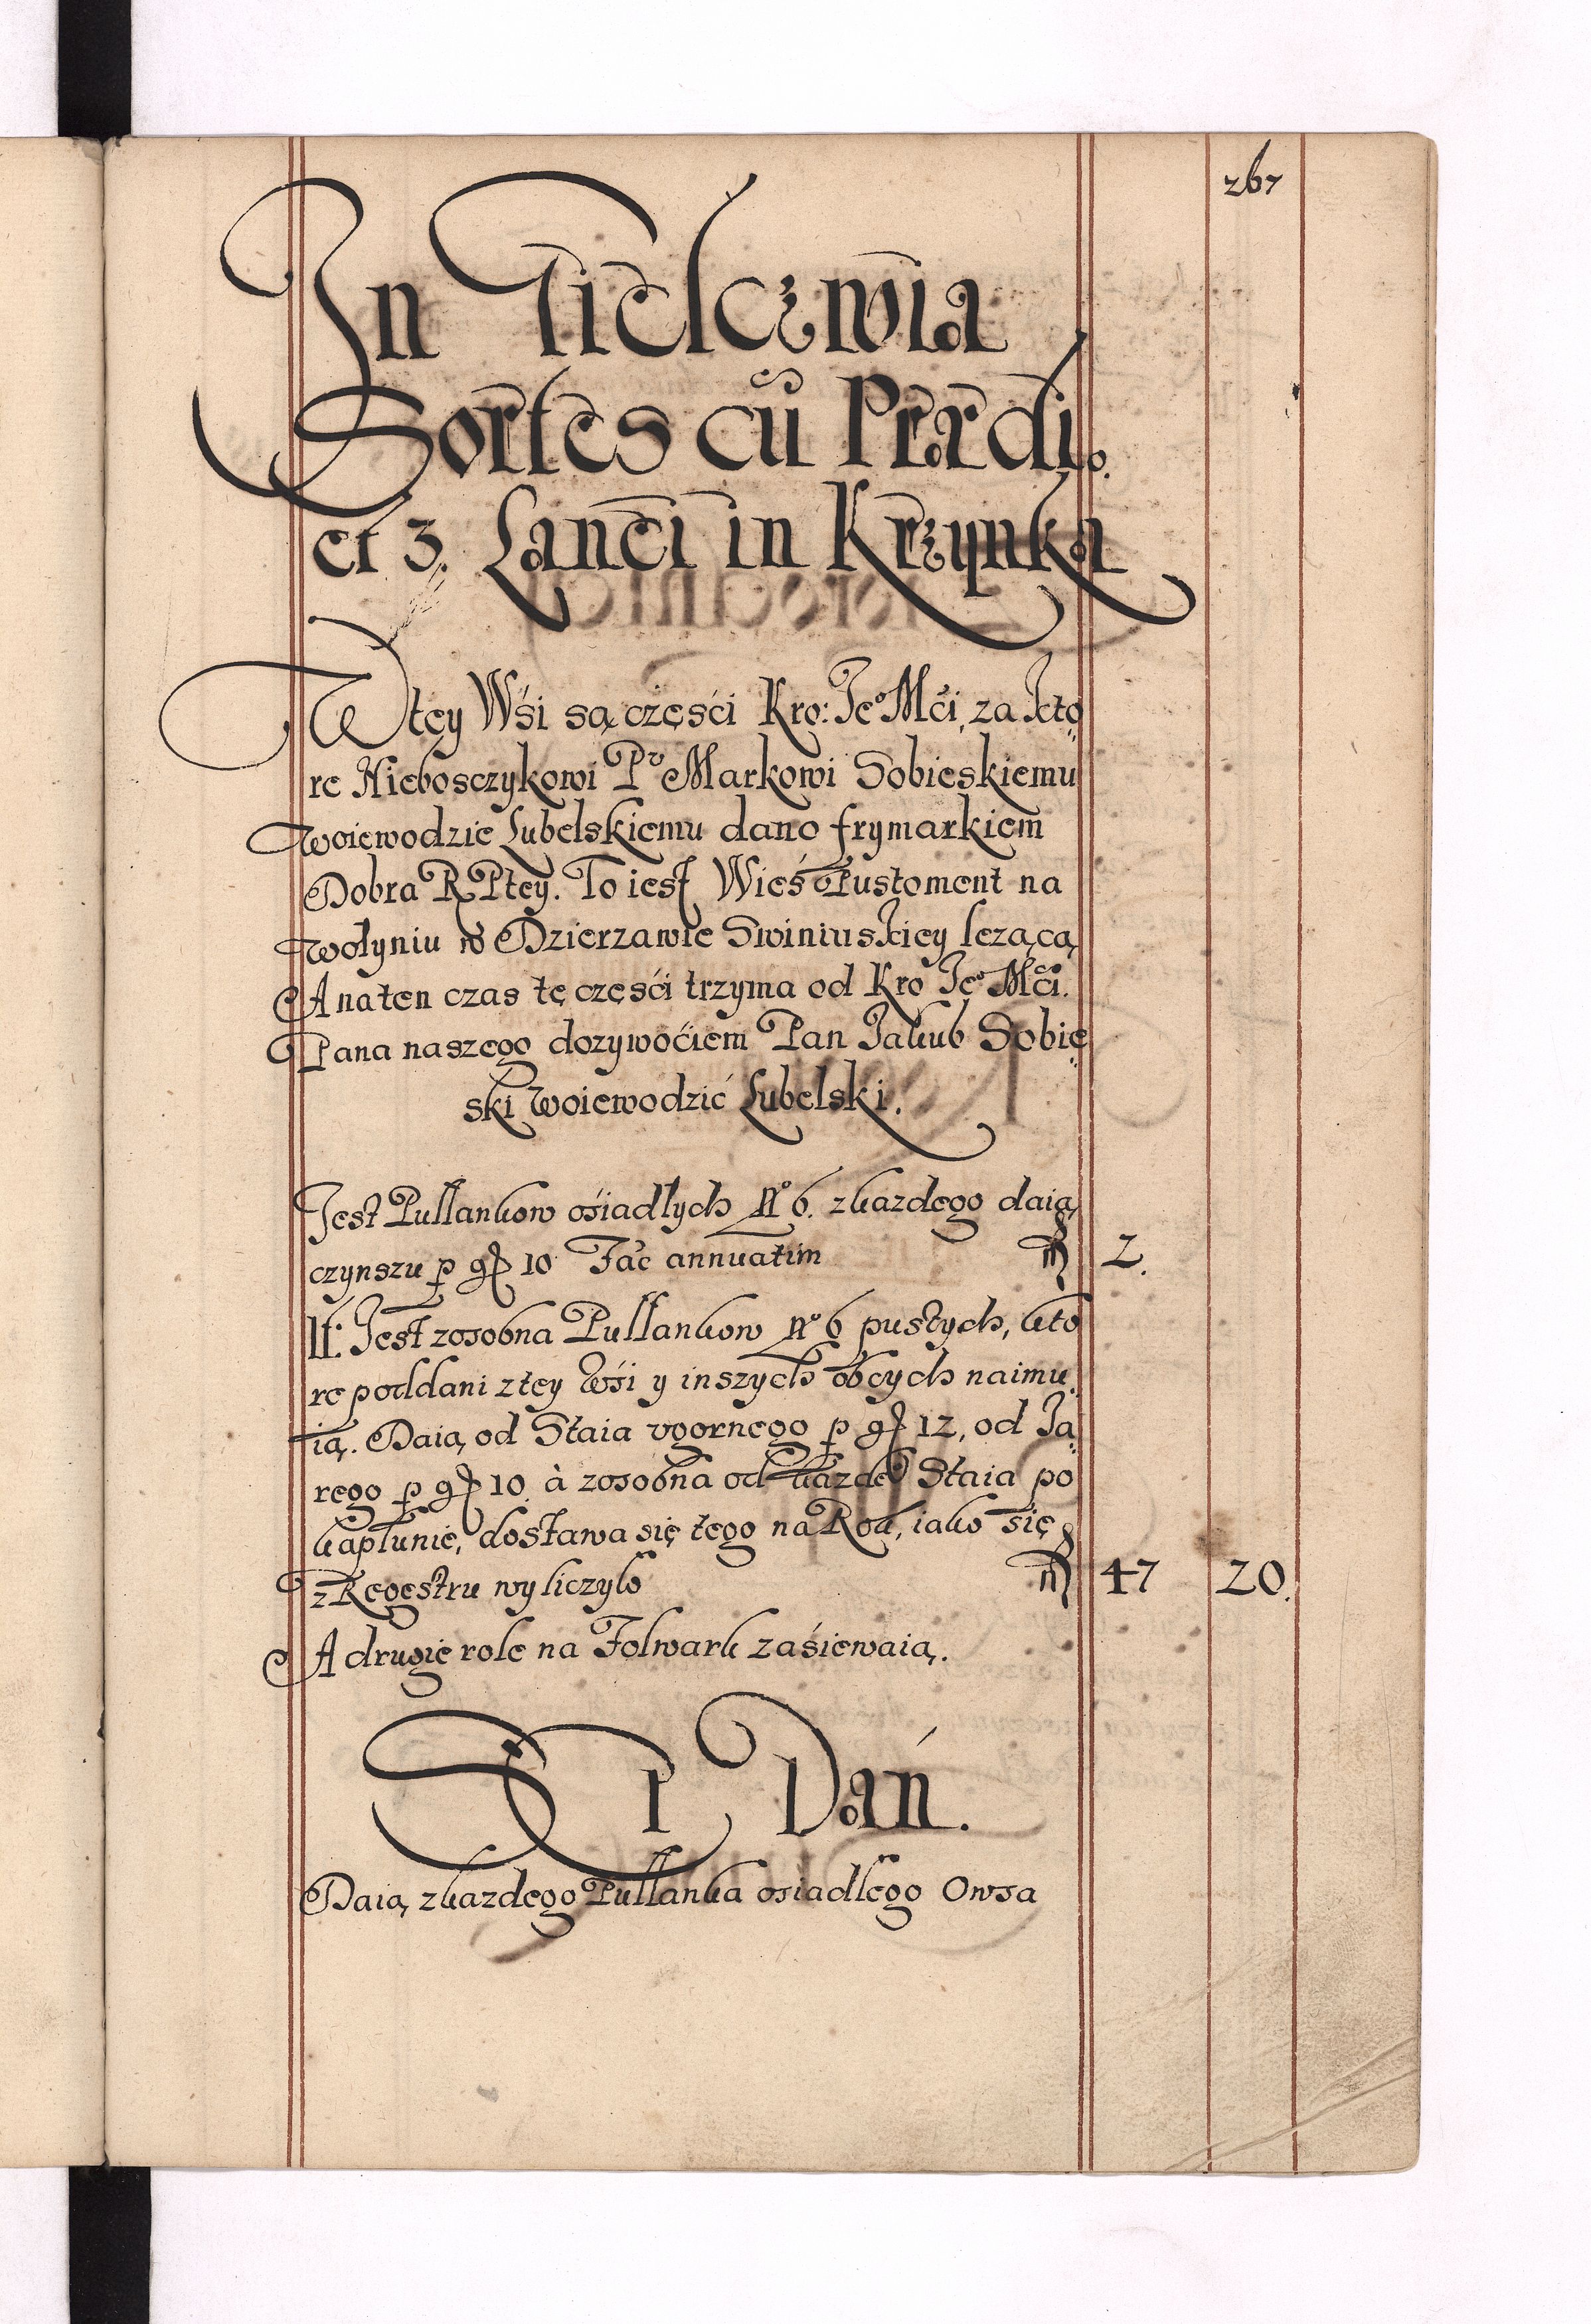 267
In Gielczwia
Sortes cũ Prædio.
et 3. Lanei in Krzynka
W tey Wśi są częśći Kro: Jeo Mći, za kto
re Nieboszczykowi Pu Markowi Sobieskiemu
woiewodzie Lubelskiemu dano frymarkiem
Dobra R Ptey. To iest Wieś Pustoment na
wołyniu w Dzierzawie Swiniuskiey lezącą
A na ten czas tę częśći trzyma od Kro Jeo Mći.
Pana naszego dozywoćiem Pan Jakub Sobie
ski woiewodzić Lubelski.
Jest Pullankow ośiadłych No 6. z kazdego daią
czynszu p gr 10 Fac annuatim 2.
It: Jest zosobna Pullankow No 6 pustych, kto
re poddani z tey Wśi y inszych obcych naimu
ią. Daią od Staia vgornego p gr 12, od Ja
rego p gr 10. à zosobna od kazde Staia po
kapłunie, dostawa się tego na Rok, iako się
z Regestru wyliczyło 47 20.
A drugie role na Folwark zaśiewaią.
Dań.
Daią z kazdego Pullanka osiadlego Owsa